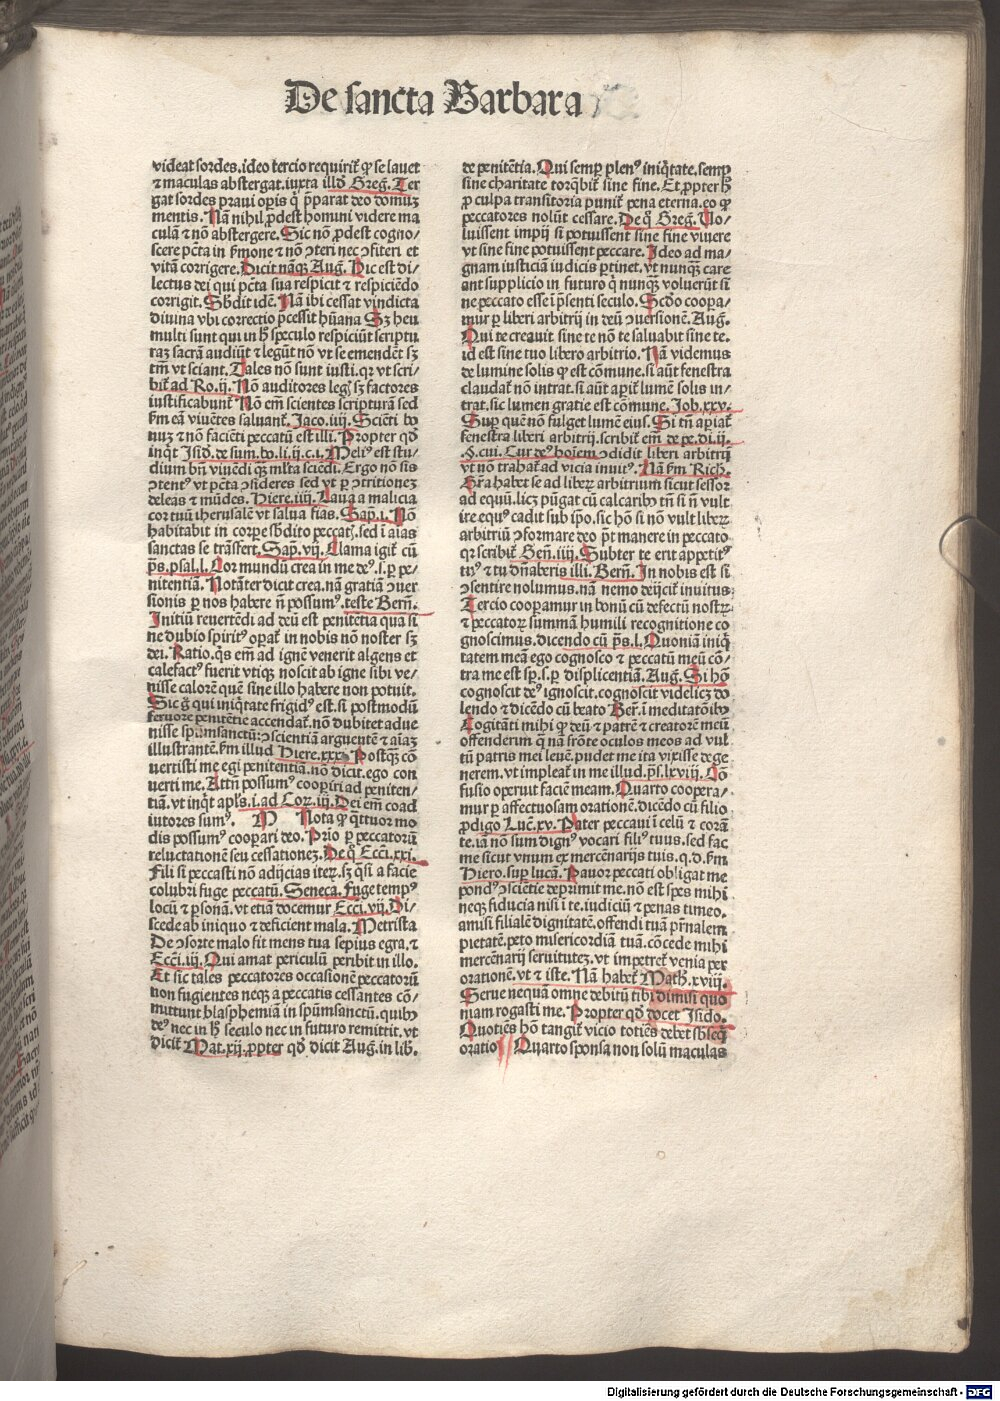 De sancta Barbara
videat sordes. ideo tercio requirit̃ ꝙ se lauet
⁊ maculas abstergat. iuxta illḋ Greg̃. Ter
gat sordes praui operis q̃ p̃parat deo domuꝫ
mentis. Nã nihil ꝓdest homini videre ma
culã ⁊ nõ abstergere. Sic nõ ꝓdest cogno⸗
scere pctã in ẜmone ⁊ nõ ꝯteri nec ꝯfiteri et
vitã corrigere. Dicit nãqꝫ Aug̃. Hic est di⸗
lectus dei qui pctã sua respicit ⁊ respiciẽdo
corrigit. Sb̃dit idẽ. Nã ibi cessat vindicta
diuina vbi correctio p̃cessit hũana Sꝫ heu
multi sunt qui in h̃ speculo respiciũt scriptu
raꝫ sacrã audiũt ⁊ legũt nõ vt se emendẽt sꝫ
tm̃ vt sciant. Tales nõ sunt iusti. qꝛ vt scri⸗
bit̃ ad Ro. ij. Nõ auditores legꝭ sꝫ factores
iustificabunt̃ Nõ em̃ scientes scripturã sed
ẜm eã viuẽtes saluant̃. Jaco. iiij. Sciẽti bo
nuꝫ ⁊ nõ faciẽti peccatũ est illi. Propter qḋ
inq̇t Isiḋ. de sum. bo. li. ij. c. i. Meliꝰ est stu⸗
dium bñ viuẽdi qꝫ ml̃ta sciẽdi. Ergo nõ sis
ꝯtentꝰ vt pctã ꝯsideres sed vt ꝑ ꝯtritioneꝫ
deleas ⁊ mũdes. Hiere. iiij. Laua a malicia
cor tuũ iherusalẽ vt salua fias. Sap̃. i. Nõ
habitabit in corpe sb̃dito peccatꝭ. sed ĩ aĩas
sanctas se trãsfert. Sap̃. vij. Clama igit̃ cũ
p̃s. psal. l. Cor mundũ crea in me deꝰ. s. ꝑ pe⸗
nitentiã. Notãter dicit crea. nã gratiã ꝯuer
sionis ꝑ nos habere ñ possumꝰ. teste Berñ.
Initiũ reuertẽdi ad deũ est penitẽtia qua si
ne dubio spiritꝰ opat̃ in nobis nõ noster sꝫ
dei. Ratio. q̃s em̃ ad ignẽ venerit algens et
calefactꝰ fuerit vtiqꝫ noscit ab igne sibi ve⸗
nisse calorẽ quẽ sine illo habere non potuit.
Sic g̃ qui iniq̇tate frigidꝰ est. si postmodũ
feruore penitẽtie accendat̃. nõ dubitet adue
nisse spm̃sanctũ ꝯscientiã arguentẽ ⁊ aĩaꝫ
illustrantẽ. ẜm illud Hiere. xxxi. Postqꝫ cõ
vertisti me egi penitentiã. nõ dicit. ego con
verti me. Attñ possumꝰ coopiri ad peniten⸗
tiã. vt inq̇t apl̃s. i. ad Cor. iij. Dei em̃ coad
iutores sumꝰ. M Nota ꝙ q̃ttuor mo
dis possumꝰ coopari deo. Prĩo ꝑ peccatorũ
reluctationẽ seu cessationeꝫ. De q̃ Ecci. xxi.
Fili si peccasti nõ adijcias iteꝝ. sꝫ q̃si a facie
colubri fuge peccatũ. Seneca. Fuge tempꝰ
locũ ⁊ ꝑsonã. vt etiã docemur Ecci. vij. Di⸗
scede ab iniquo ⁊ deficient mala. Metrista
De ꝯsorte malo fit mens tua sepius egra. ⁊
Ecci. iij. Qui amat periculũ peribit in illo.
Et sic tales peccatores occasionẽ peccatorũ
non fugientes neqꝫ a peccatis cessantes cõ⸗
mittunt blasphemiã in spũmsanctũ. quibꝫ
deꝰ nec in h̃ seculo nec in futuro remittit. vt
dicit̃ Mat. xij. ꝓpter qḋ dicit Aug̃. in lib.
de penitẽtia. Qui semꝑ plenꝰ iniq̇tate. semꝑ
sine charitate torq̃bit̃ sine fine. Et ꝓpter h̃
ꝓ culpa transitoria punit̃ pena eterna. eo ꝙ
peccatores nolũt cessare. De q̃ Greg̃. Vo⸗
luissent impij si potuissent sine fine viuere
vt sine fine potuissent peccare. Ideo ad ma⸗
gnam iusticiã iudicis ptinet. vt nunqꝫ care
ant supplicio in futuro q̃ nunqꝫ voluerũt si
ne peccato esse ĩ p̃senti seculo. Scḋo coopa⸗
mur ꝑ liberi arbitrij in deũ ꝯuersionẽ. Aug.
Qui te creauit sine te nõ te saluabit sine te.
id est sine tuo libero arbitrio. Nã videmus
de lumine solis ꝙ est cõmune. si aũt fenestra
claudat̃ nõ intrat. si aũt apit̃ lumẽ solis in⸗
trat. sic lumen gratie est cõmune. Job. xxv.
Suꝑ quẽ nõ fulget lumẽ eius. Si tñ apiat̃
fenestra liberi arbitrij. scribit̃ em̃ de pe. di. ij.
.§. cui. Cur deꝰ hoĩem ꝯdidit liberi arbitrij
vt nõ trahat̃ ad vicia inuitꝰ. Nã ẜm Rich̃.
Gr̃a habet se ad liberꝫ arbitrium sicut sessor
ad equũ. licꝫ pũgat cũ calcaribꝰ tñ si ñ vult
ire equꝰ cadit sub ip̃o. sic hõ si nõ vult liberꝫ
arbitriũ ꝯformare deo pt̃ manere in peccato
qꝛ scribit̃ Geñ. iiij. Subter te erit appetitꝰ
tuꝰ ⁊ tu dñaberis illi. Berñ. In nobis est si
ꝯsentire nolumus. nã nemo deijcit̃ inuitus
Tercio coopamur in bonũ cũ defectũ nostꝝ
⁊ peccatoꝝ summã humili recognitione co
gnoscimus. dicendo cũ p̃s. l. Quoniã iniq̇
tatem meã ego cognosco ⁊ peccatũ meũ cõ⸗
tra me est sp̃. s. ꝑ displicentiã. Aug. Si hõ
cognoscit deꝰ ignoscit. cognoscit videlicꝫ do
lendo ⁊ dicẽdo cũ beato Ber̃. ĩ meditatõibꝫ
Cogitãti mihi ꝙ deũ ⁊ patrẽ ⁊ creatorẽ meũ
offenderim q̃ nã frõte oculos meos ad vul
tũ patris mei leuẽ. pudet me ita vixisse dege
nerem. vt impleat̃ in me illud. ps̃. lxviij. Cõ
fusio operuit faciẽ meam. Quarto coopera⸗
mur ꝑ affectuosam orationẽ. dicẽdo cũ filio
ꝓdigo Luc̃. xv. Pater peccaui ĩ celũ ⁊ corã
te. iã nõ sum dignꝰ vocari filiꝰ tuus. sed fac
me sicut vnum ex mercẽnarijs tuis. q. d. ẜm
Hiero. suꝑ lucã. Pauor peccati obligat me
pondꝰ ꝯsciẽtie deprimit me. nõ est spes mihi
neqꝫ fiducia nisi ĩ te. iudiciũ ⁊ penas timeo.
amisi filialẽ dignitatẽ. offendi tuã pr̃nalem
pietatẽ. peto misericordiã tuã. cõcede mihi
mercẽnarij seruituteꝫ. vt impetrẽ venia per
orationẽ. vt ⁊ iste. Nã habet̃ Math̃. xviij.
Serue nequã omne debitũ tibi dimisi quo
niam rogasti me. Propter qḋ docet Isido.
Quotiẽs hõ tangit̃ vicio totiẽs debet sb̃seq̃
oratio Quarto sponsa non solũ maculas
Digitalisierung gefördert durch die Deutsche Forschungsgemeinschaft - DFG